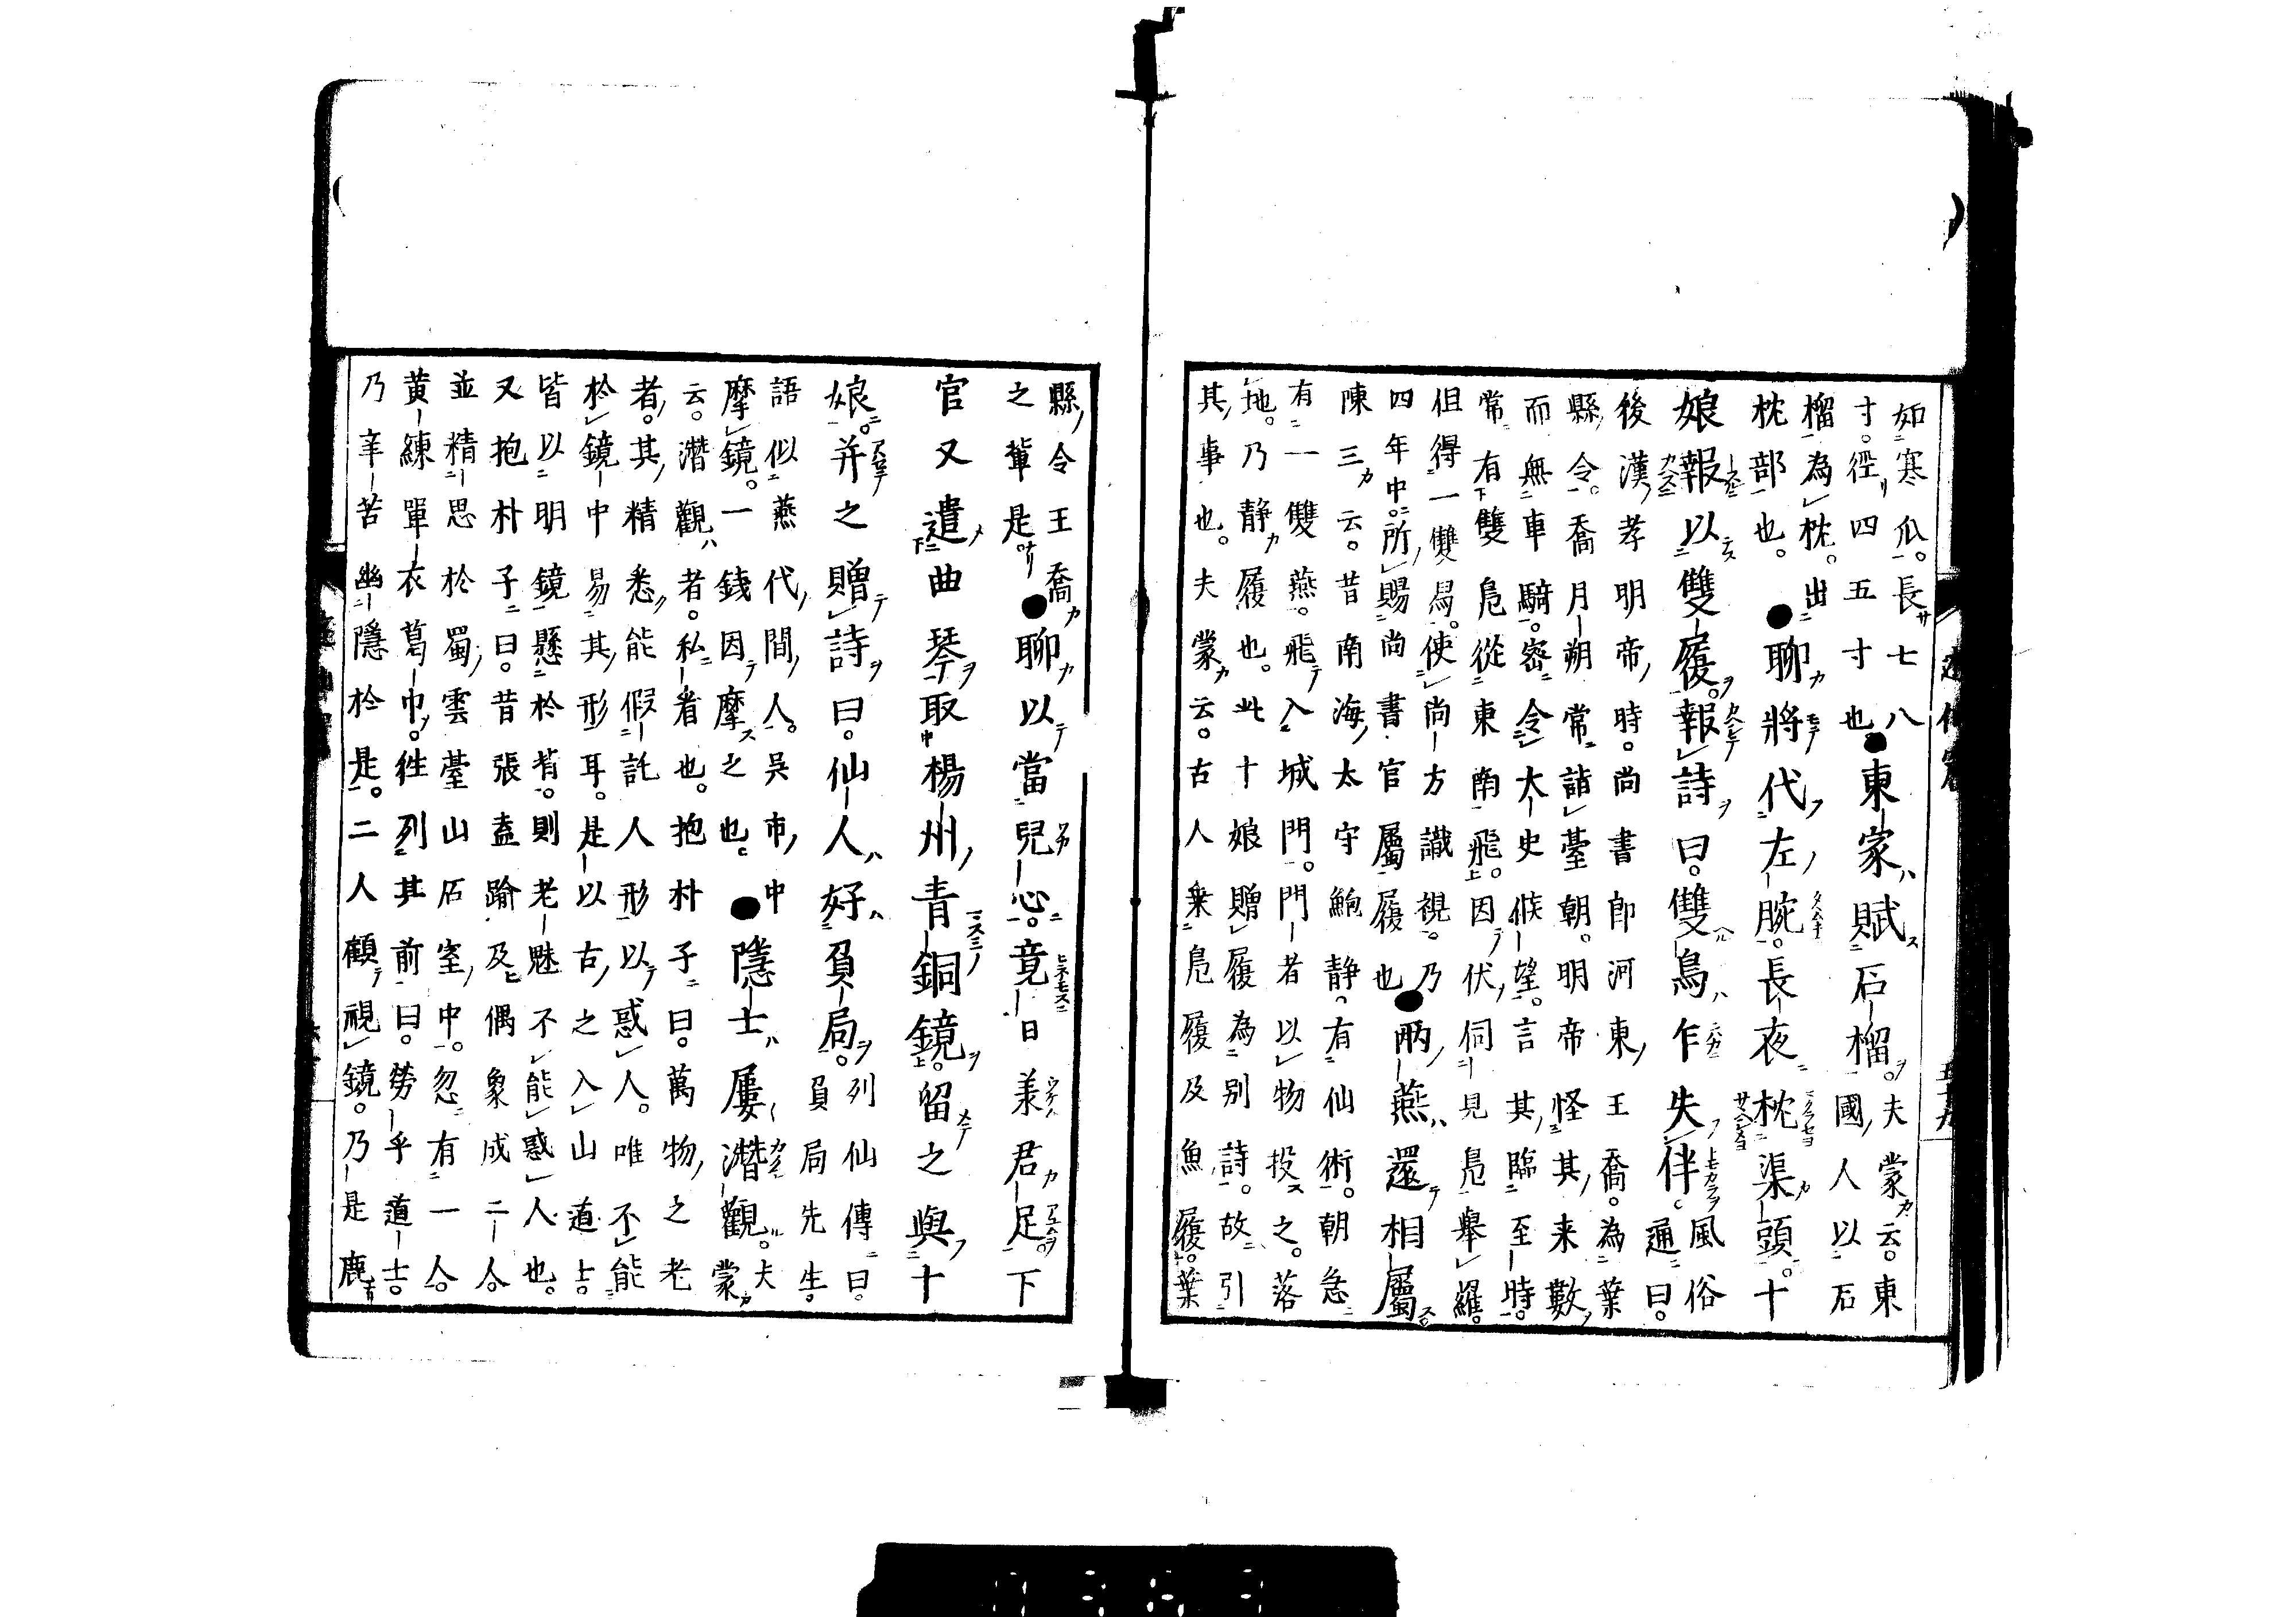 如寒瓜。長七八
寸。徑四五寸也。
●東家賦石榴。
夫蒙云。東
國人以石
榴為枕。出
枕部也。
●聊將代左腕。長夜枕渠頭。十
娘報以雙履。報詩曰。雙鳬乍失伴。
風俗
通曰。
後漢孝明帝時。尚書郎河東王喬。為葉
縣令。喬月朔常詣臺朝。明帝怪其来數
而無車騎。密令大史候望。言其臨至時。
常有雙鳬從東南飛。因伏伺見鳬舉羅。
但得一雙舄。使尚方識視。乃
四年中。所賜尚書官屬履也
●兩燕還相屬
陳三云。昔南海太守鮑静。有仙術。朝急
有一雙燕。飛入城門。門者以物投之。落
地。乃静履也。此十娘贈履為别詩。故引
其事也。夫蒙云。古人乗鳬履及魚履。葉
縣令王喬
之輩是。
●聊以當兒心。竟日羕君足。下
官又遣曲琴取楊州青銅鏡。留之與十
娘。并之贈詩曰。仙人好負局。
列仙傳曰。
負局先生。
語似燕代間人。吳市中
摩鏡。一錢因摩之也。
●隱士屢潛觀。
夫
蒙
云。潛觀者。私看也。抱朴子曰。萬物之老
者。其精悉能假託人形以惑人。唯不能
於鏡中易其形耳。是以古之入山道士。
皆以明鏡懸於背。則老魅不能惑人也。
又抱朴子曰。昔張盍踰及偶象成二人。
並精思於蜀雲臺山石室中。忽有一人。
黄練單衣葛巾。往列其前曰。勞乎道士。
乃辛苦幽隱於是。二人顧視鏡。乃是鹿